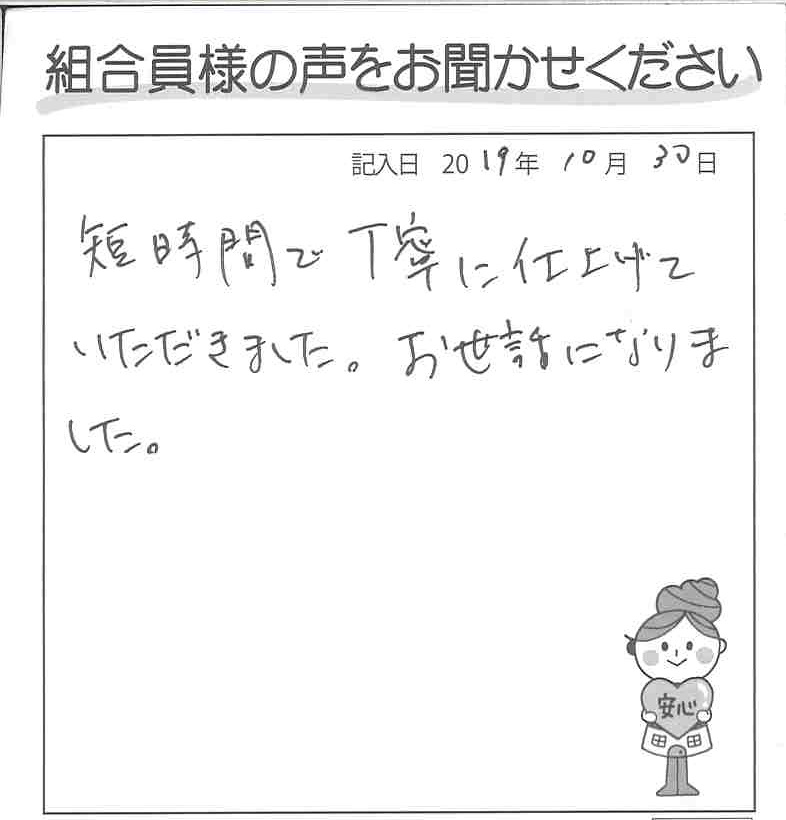 組合員様の声をお聞かせください
記入日 2019年 10月 30日
短時間で丁寧に仕上げて
いただきました。お世話になりま
した。
安心